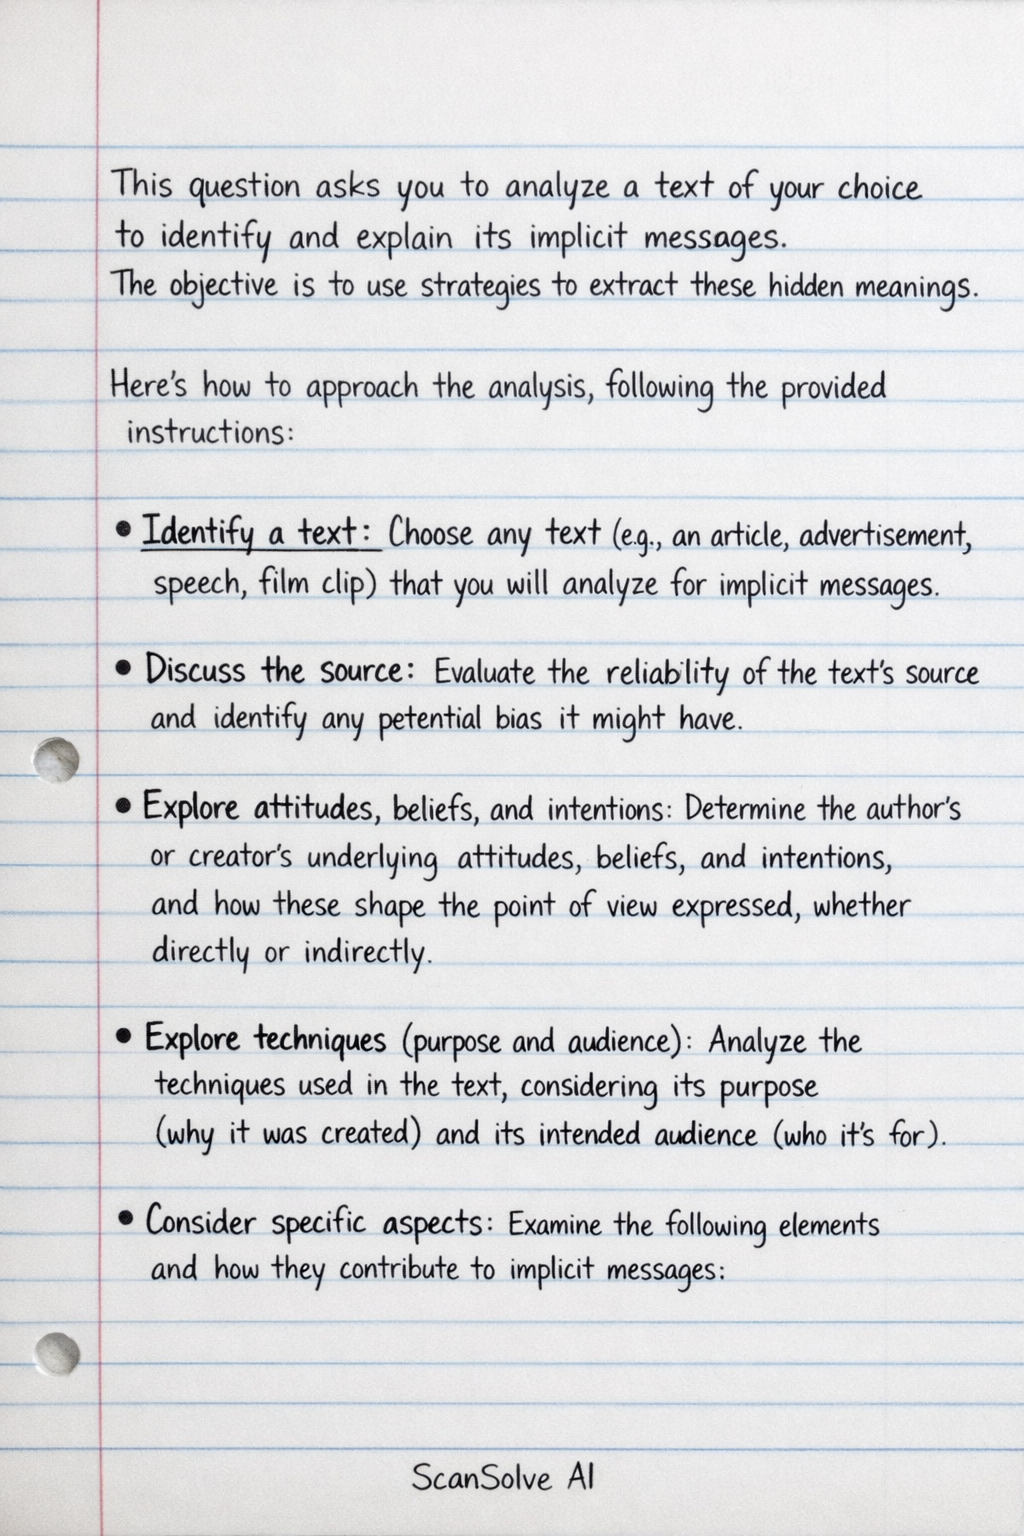 This question asks you to analyze a text of your choice
to identify and explain its implicit messages.
The objective is to use strategies to extract these hidden meanings.
Here's how to approach the analysis, following the provided
instructions:
• Identify a text: Choose any text (e.g., an article, advertisement,
speech, film clip) that you will analyze for implicit messages.
• Discuss the source: Evaluate the reliability of the text's source
and identify any petential bias it might have.
• Explore attitudes, beliefs, and intentions: Determine the author's
or creator's underlying attitudes, beliefs, and intentions,
and how these shape the point of view expressed, whether
directly or indirectly.
• Explore techniques (purpose and audience): Analyze the
techniques used in the text, considering its purpose
(why it was created) and its intended audience (who it's for).
• Consider specific aspects: Examine the following elements
and how they contribute to implicit messages:
ScanSolve AI